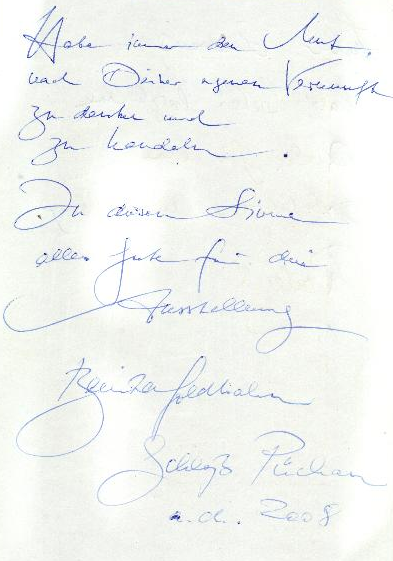 Habe immer den Mut,
nach Deiner eigenen Vernunft
zu denken und
zu handeln.
In diesem Sinne
alles Gute für die
Ausstellung
Schloß Püchau
a.d. 2008